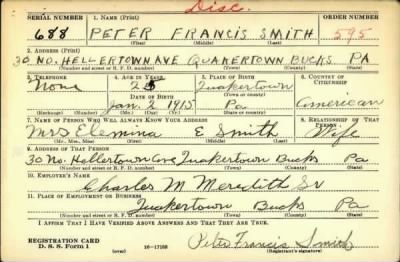 Disc.
SERIAL NUMBER 1. Name (Print) ORDER NUMBER
688 PETER FRANCIS SMITH 595
(First) (Middle) (Last)
2. Address (Print)
30 NO. HELLERTOWN AVE QUAKERTOWN BUCKS PA
(Number and street or R. F. D. number) (Town) (County) (State)
3. Telephone 4. Age in Years 5. Place of Birth 6. Country of Citizenship
None 25 Quakertown
Date of Birth (Town or county)
Jan. 2 1915 Pa American
(Exchange) (Number) (Mo.) (Day) (Yr.) (State or country)
7. Name of Person Who Will Always Know Your Address 8. Relationship of That Person
Mrs E. Smith Wife
(Mr., Mrs., Miss) (First) (Middle) (Last)
9. Address of That Person
30 No. Hellertown Ave Quakertown Bucks Pa
(Number and street or R. F. D. number) (Town) (County) (State)
10. Employer's Name
Charles M Meredith Sr
11. Place of Employment or Business
Quakertown Bucks Pa
(Number and street or R. F. D. number) (Town) (County) (State)
I Affirm That I Have Verified Above Answers and That They Are True.
REGISTRATION CARD
D. S. S. Form 1 (over) 16-17105 Peter Francis Smith
(Registrant's signature)